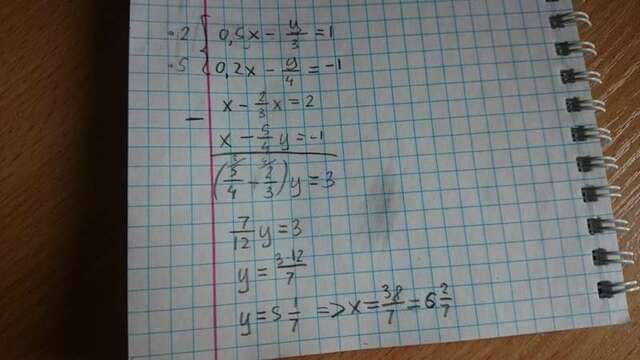 ·2 { 0,5x - y/3 = 1
·5 { 0,2x - y/4 = -1
x - 2/3 x = 2
- x - 5/4 y = -1
(5/4 - 2/3) y = 3
7/12 y = 3
y = 3·12/7
y = 5 1/7 => x = 38/7 = 6 2/7